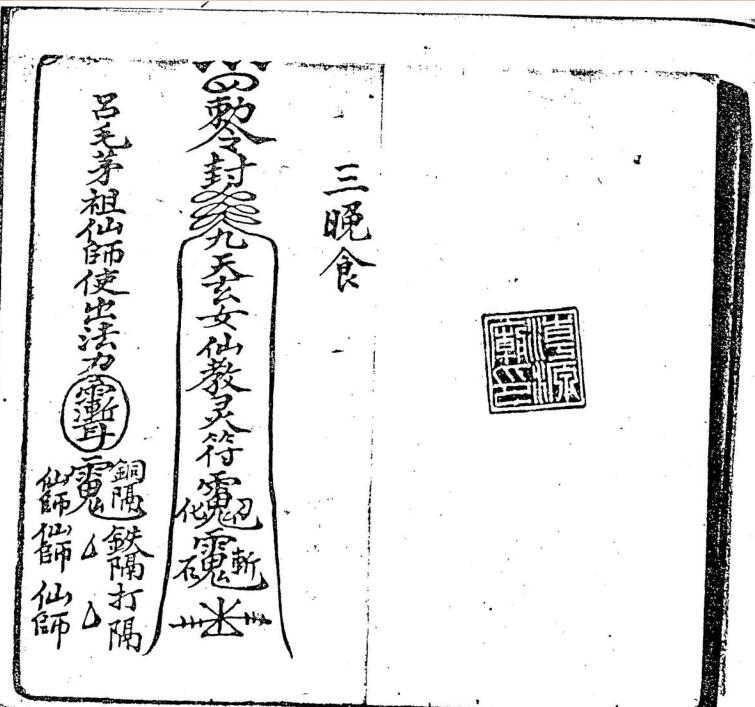 三晚食
勅令封
九天玄女仙教灵符
化
石 斬
呂毛茅祖仙師使出法力
銅隔鉄隔打隔
仙師仙師仙師